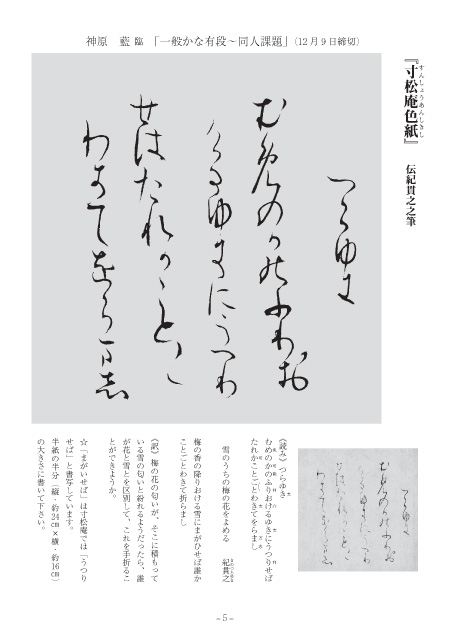 神原　藍 臨 「一般かな有段～同人課題」（12月9日締切）
『寸松庵色紙』　伝紀貫之筆
すんしょうあんしきし
つらゆき
むめのかの
ふりおける
ゆきにうつり
せはたれかことこと
わきてをらまし
《読み》つらゆき
むめのかのふりおけるゆきにうつりせば
たれかことごとわきてをらまし
雪のうちの梅の花をよめる
紀貫之
きのつらゆき
梅の香の降りおける雪にまがひせば誰か
ことごとわきて折らまし
《訳》梅の花の匂いが、そこに積もって
いる雪の匂いと紛れるようだったら、誰
が花と雪とを区別して、これを手折るこ
とができようか。
☆「まがいせば」は寸松庵では「うつり
せば」と書写しています。
半紙の半分（縦・約24㎝×横・約16㎝）
の大きさに書いて下さい。
－5－